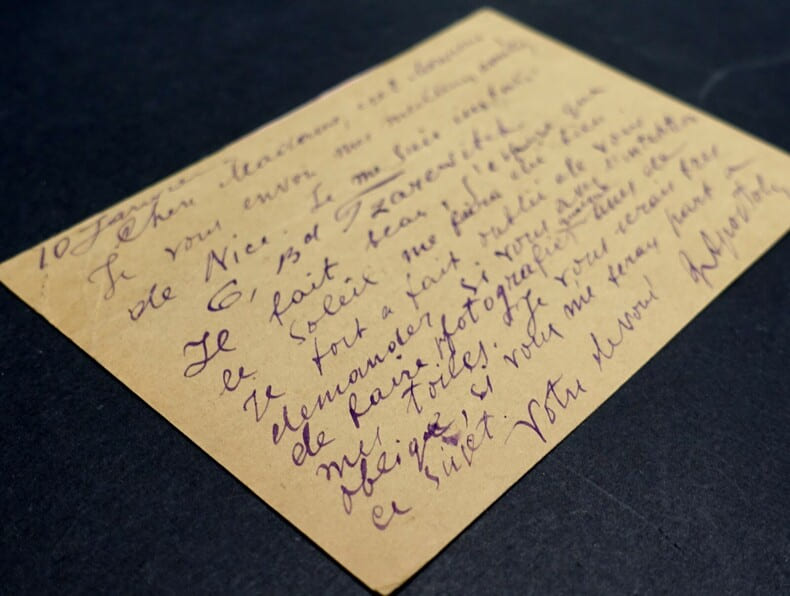 10 Janvier
Chere Madame, Monsieur
Je vous envoi mes meilleurs
de Nice. Je me suis installé
6, Bd Tzarewitch.
Il fait beau, j'espère que
le soleil me fera du bien
Je tout a fait oublié de vous
demander si vous l'intention
de faire photografier unes de
mes toiles. Je vous serais très
obligé, si vous me feray part à
ce sujet. Votre devoué